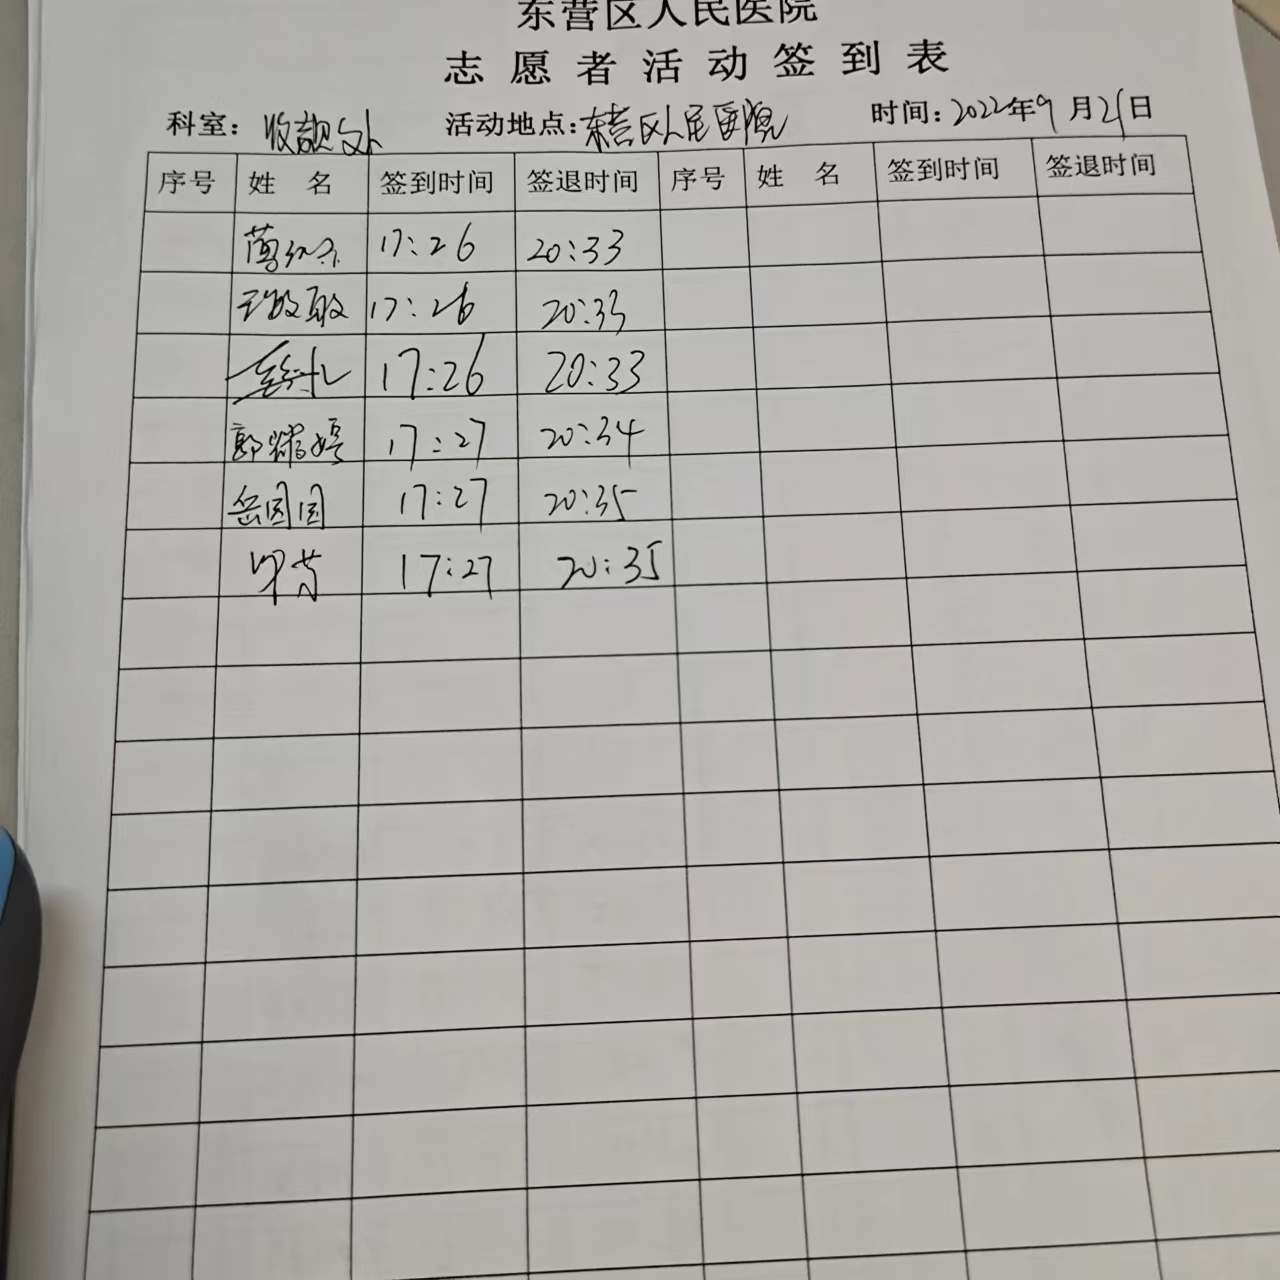 东营区人民医院
志愿者活动签到表
科室: 收款处 活动地点: 东营区人民医院 时间: 2022年9月21日
序号 姓名 签到时间 签退时间 序号 姓名 签到时间 签退时间
17:26 20:33
王敏敏 17:26 20:33
17:26 20:33
郭耀婷 17:27 20:34
岳园园 17:27 20:35
17:27 20:35